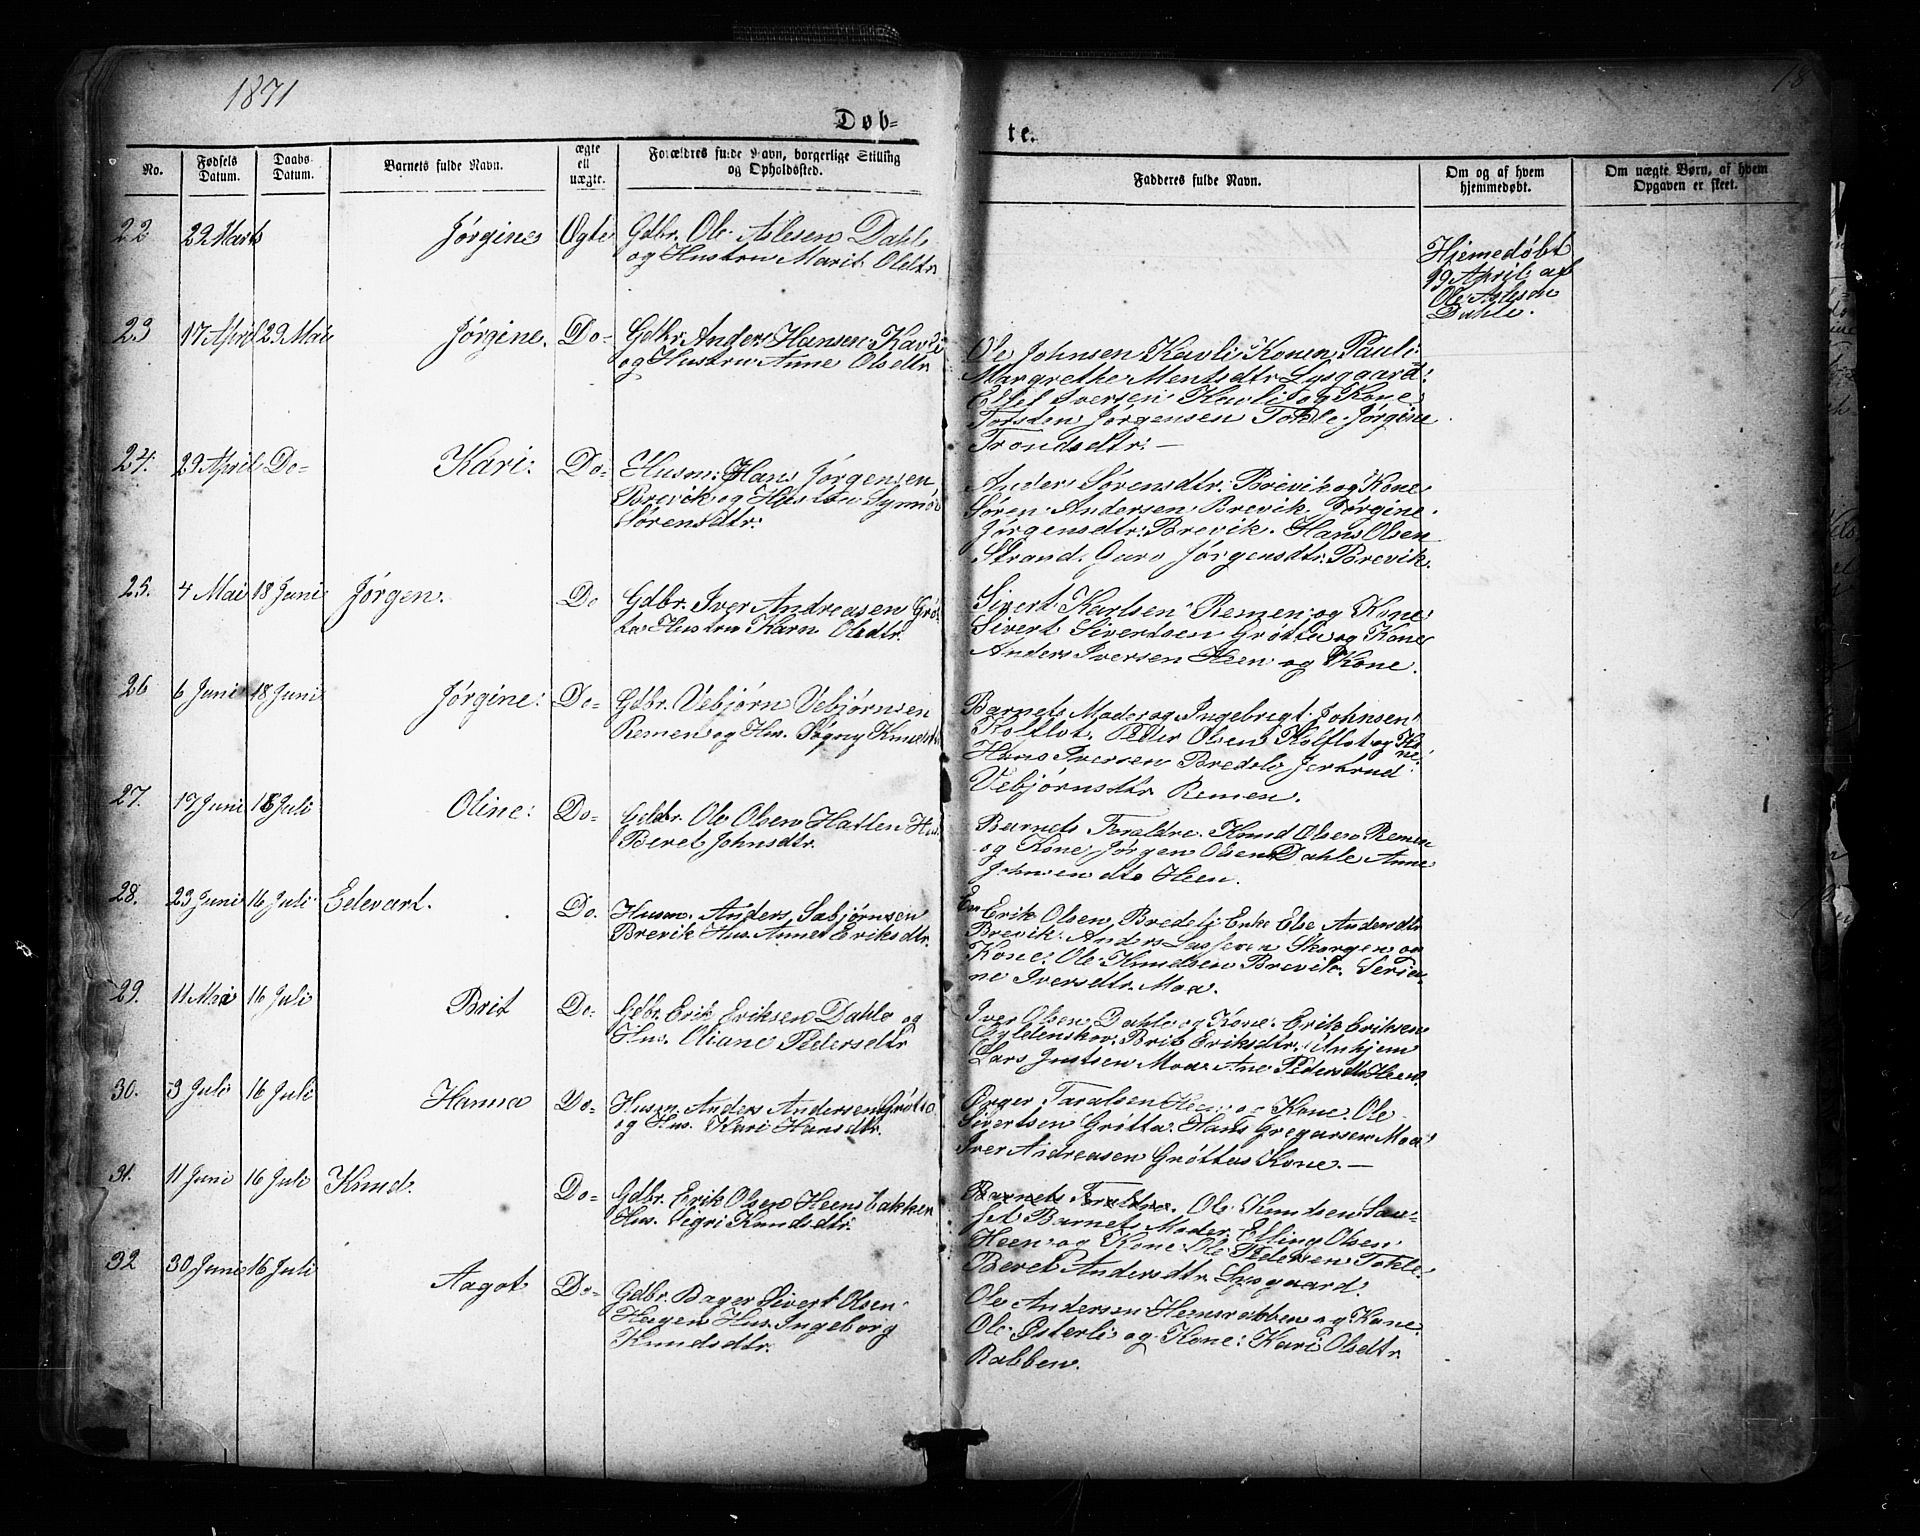 1871
18
Døb-
te.
No.
Fødsels Datum.
Daabs Datum.
Barnets fulde Navn.
ægte ell uægte.
Forældres fulde Navn, borgerlige Stilling og Opholdssted.
Fadderes fulde Navn.
Om og af hvem hjemmedøbt.
Om uægte Børn, af hvem Opgaven er skeet.
22 22 Marts Jørgine Ægte Gdbr. Ole Aslesen Dahle
og Hustru Marit Olsdtr
Hjemedøbt
19 April af
Ole Aslesen
Dahle.
23 17 April 29 Mai Jørgine. Do- Gdbr. Anders Hansen Kavli
og Hustru Anne Olsdtr
Ole Johnsen Kavli Konen Pauli.
Margrethe Mentsdtr Lysgaard:
Ellef Iversen Kavli og Kone
Torsten Jørgensen Tokle Jørgine
Trondsdtr.—
24. 29 April Do- Kari: Do- Husm: Hans Jørgensen
Brevik og Hustru Synnøv
Sørensdtr.
Anders Sørensdtr. Brevik og Kone
Søren Andersen Brevik. Jørgine
Jørgensdtr. Brevik. Hans Olsen
Strand. Guro Jørgensdtr. Brevik.
25. 4 Mai 18 Juni Jørgen. Do Gdbr. Iver Andreasen Grøt-
ta Hustru Karn Olsdtr.
Sivert Karlsen Remen og Kone
Sivert Sivertsen Grøtta og Kone
Anders Iversen Heen og Kone.
26 6 Juni 18 Juni Jørgine: Do- Gdbr. Vebjørn Vebjørnsen
Remen og Hus. Knudsdtr
Barnets Moder og Ingebrigt Johnsen
Kolflot. Peder Olsen Kolflot og Ko
ne.
Hans Iversen Bredeli Jertrud
Vebjørnsdtr Remen.
27. 17 Juni 16 Juli Oline: Do- Gdbr. Ole Olsen Hatlen Hus
Beret Johnsdtr.
Barnets Foraldre. Knud Olsen Remen
og Kone Jørgen Olsen Dahle Anne
Johnsendtr Heen.
28. 23 Juni 16 Juli Edevart. Do. Husm. Anders Sabjørnsen
Brevik Hus. Anne Eriksdtr.
Erik Olsen Bredeli Enke Else Andersdtr
Brevik. Anders Lassesen Skorgen og
Kone. Ole Knudsen Brevik. Seria-
ne Iversdtr. Moa.
29. 11 Mai 16 Juli Brit Do- Gdbr. Erik Eriksen Dahle og
Hus. Oliane Pedersdtr
Iver Olsen Dahle og Kone. Erik Eriksen
Gyldenskov. Brit Eriksdtr. Unhjem
Lars Justsen Moa. Ane Pedersdtr Heen.
30. 3 Juli 16 Juli Hanna Do- Husm Anders Andersen Grøtta
og Hus. Kari Hansdtr.
Birger Taralsen Heen og Kone. Ole
Sivertsen Grøtta. Hans Gregarsen Moa
Iver Andreasen Grøtta og Kone.—
31. 11 Juni 16 Juli Knud. Do- Gdbr. Erik Olsen Heensbakken
Hus. Sigri Knudsdtr.
Barnets Foraldre. Ole Knudsen Sau-
set Barnets Moder. Elling Olsen
Heen og Kone. Ole Pedersen Tokle.
Beret Andersdtr. Lysgaard.
32 30 Juni 16 Juli Aagot Do- Gdbr. Bager Sivert Olsen
Hagen Hus. Ingeborg
Knudsdtr.
Ole Andersen Heensrabben og Kone.
Ole Østerli og Kone: Kari Olsdtr.
Rabben.